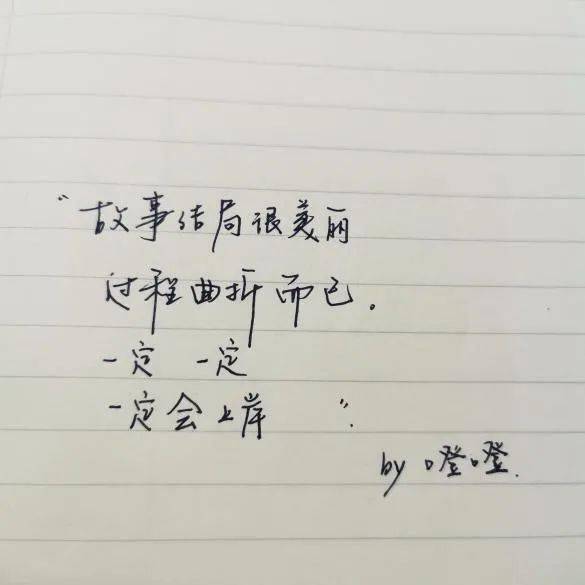 “故事结局很美丽
过程曲折而已。
一定 一定
一定会上岸 ”.
by 噔噔.